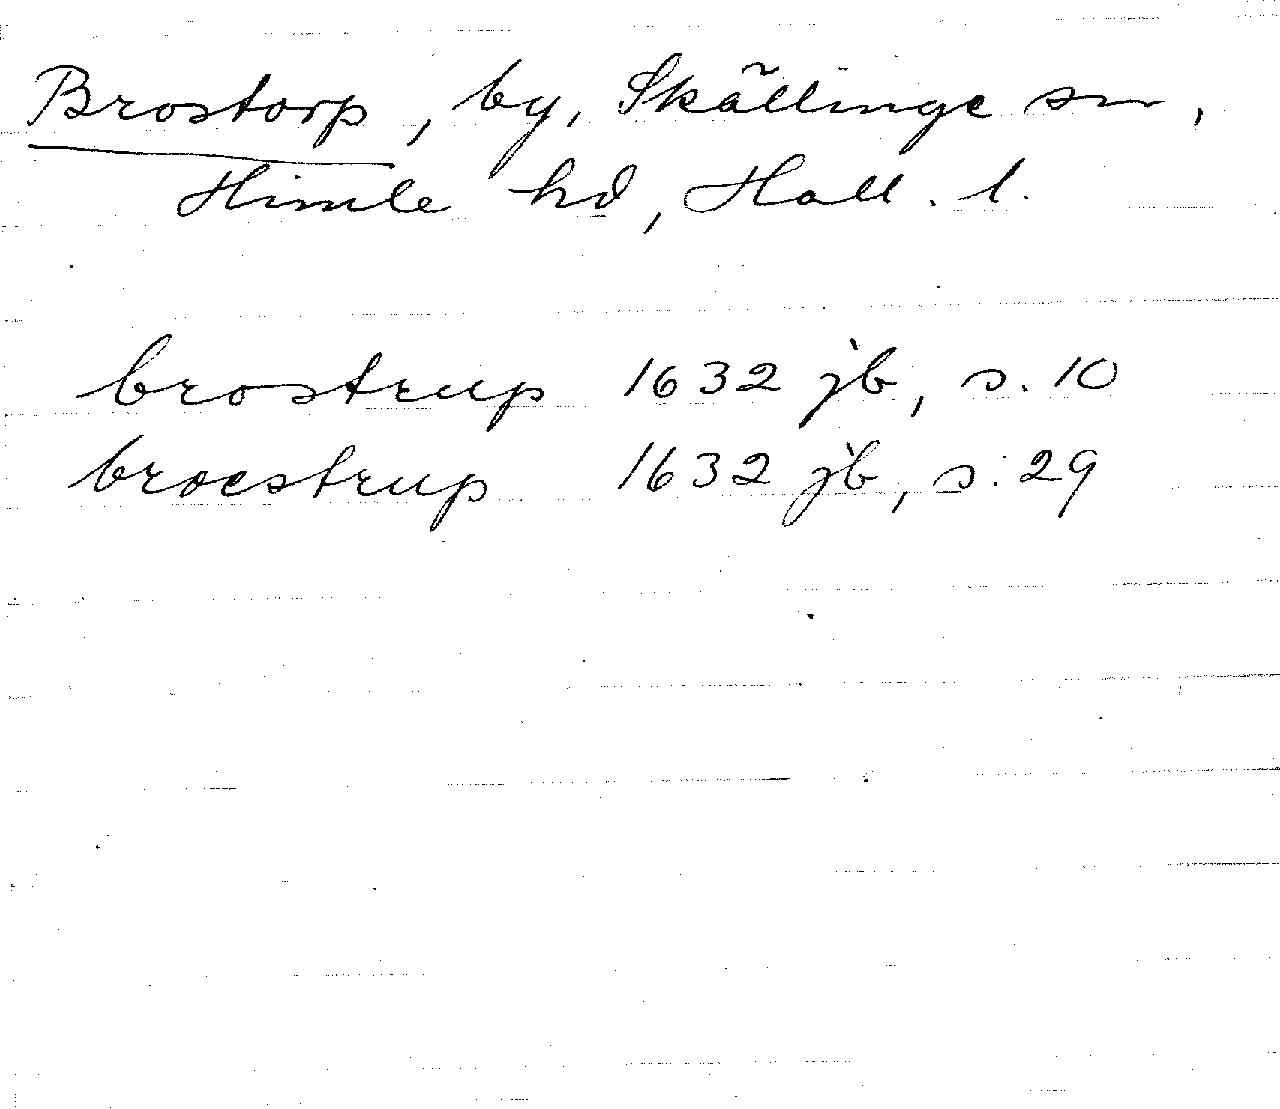 Brostorp, by, Skällinge sn,
Himle hd, Hall. l.
brostrup 1632 jb, s. 10
broestrup 1632 jb, s. 29